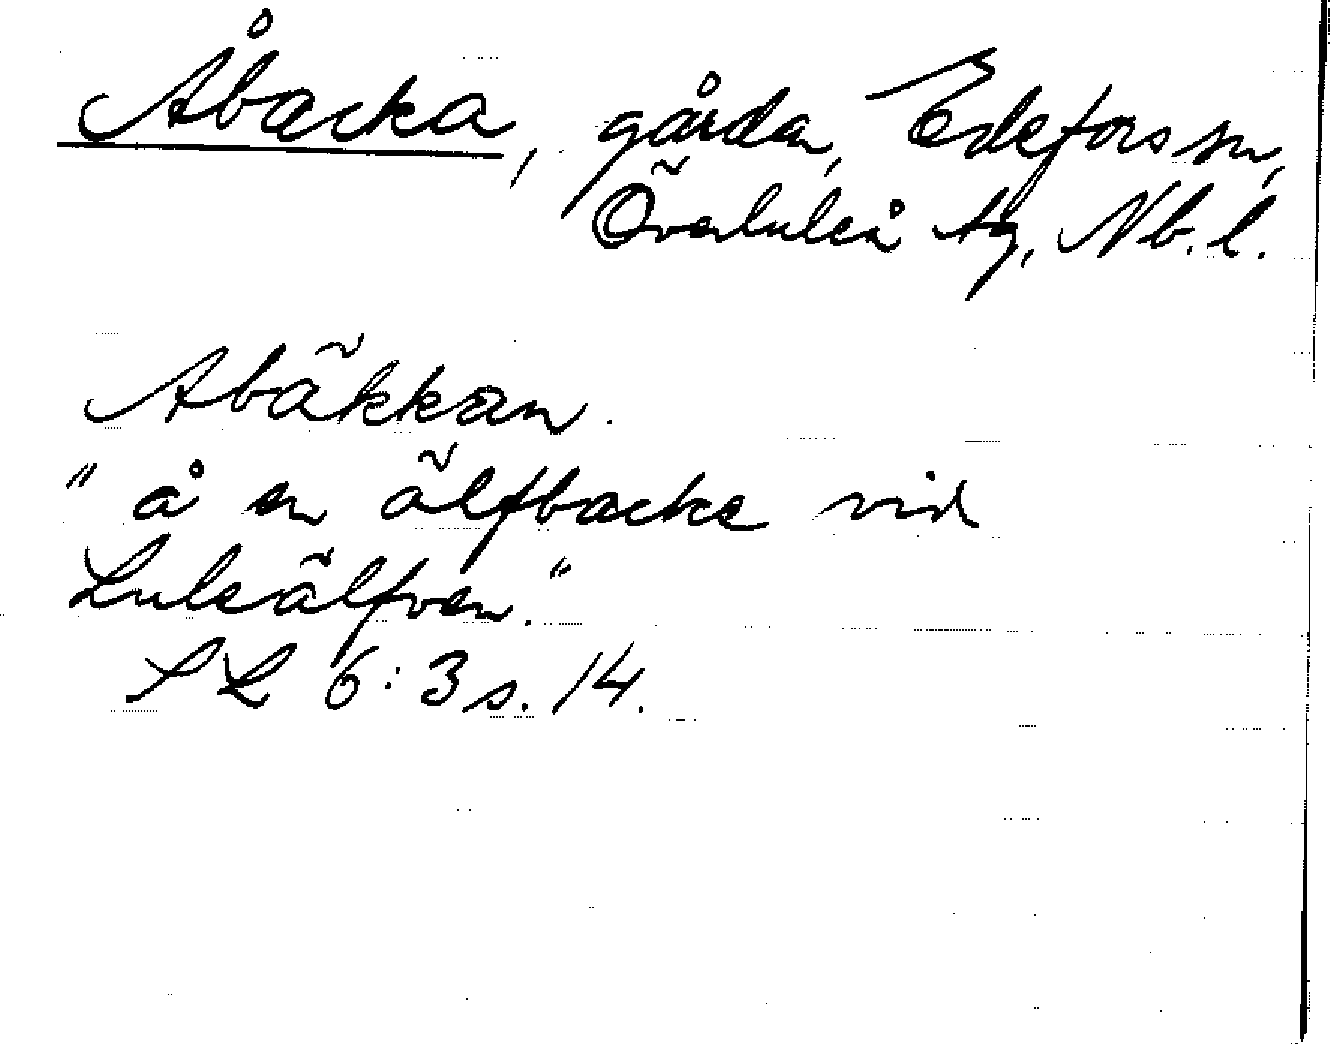 Åbacka, gårdar, Edefors sn,
Överluleå tg, Nb. l.
Abäkkan.
"å en älfbacke vid
Luleälfven."
SL 6:3 s. 14.